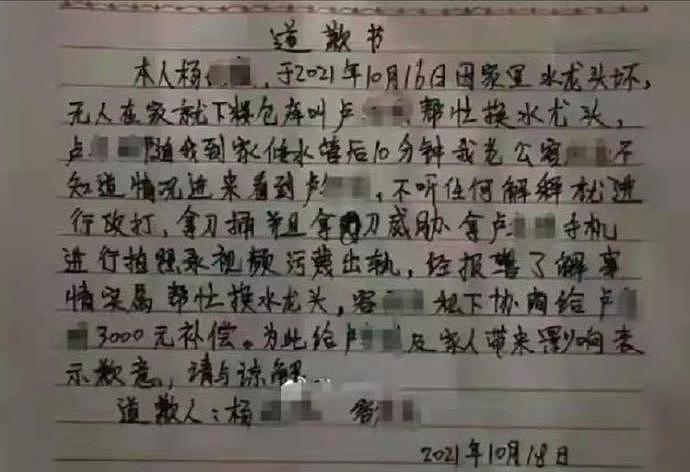 道歉书
本人杨 ,于2021年10月16日因家里水龙头坏,
无人在家就下粮仓库叫卢 帮忙换水龙头,
卢 随我到家修水管后10分钟我老公容 不
知道情况进来看到卢 ,不听任何解释就进
行攻打,拿刀捅并且拿刀威胁拿卢 手机
进行拍照录视频污蔑出轨,经报警了解事
情实属帮忙换水龙头,容 私下协商给卢
3000元补偿。为此给卢 及家人带来影响表
示歉意,请与谅解
道歉人:杨 容
2021年10月18日